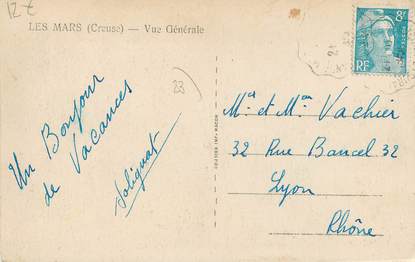 12€
LES MARS (Creuse) — Vue Générale
23
Un Bonjour
de Vacances
Soliguat
8F
POSTES
RF
Mr et Mme Vachier
32 Rue Bancel 32
Lyon
Rhône